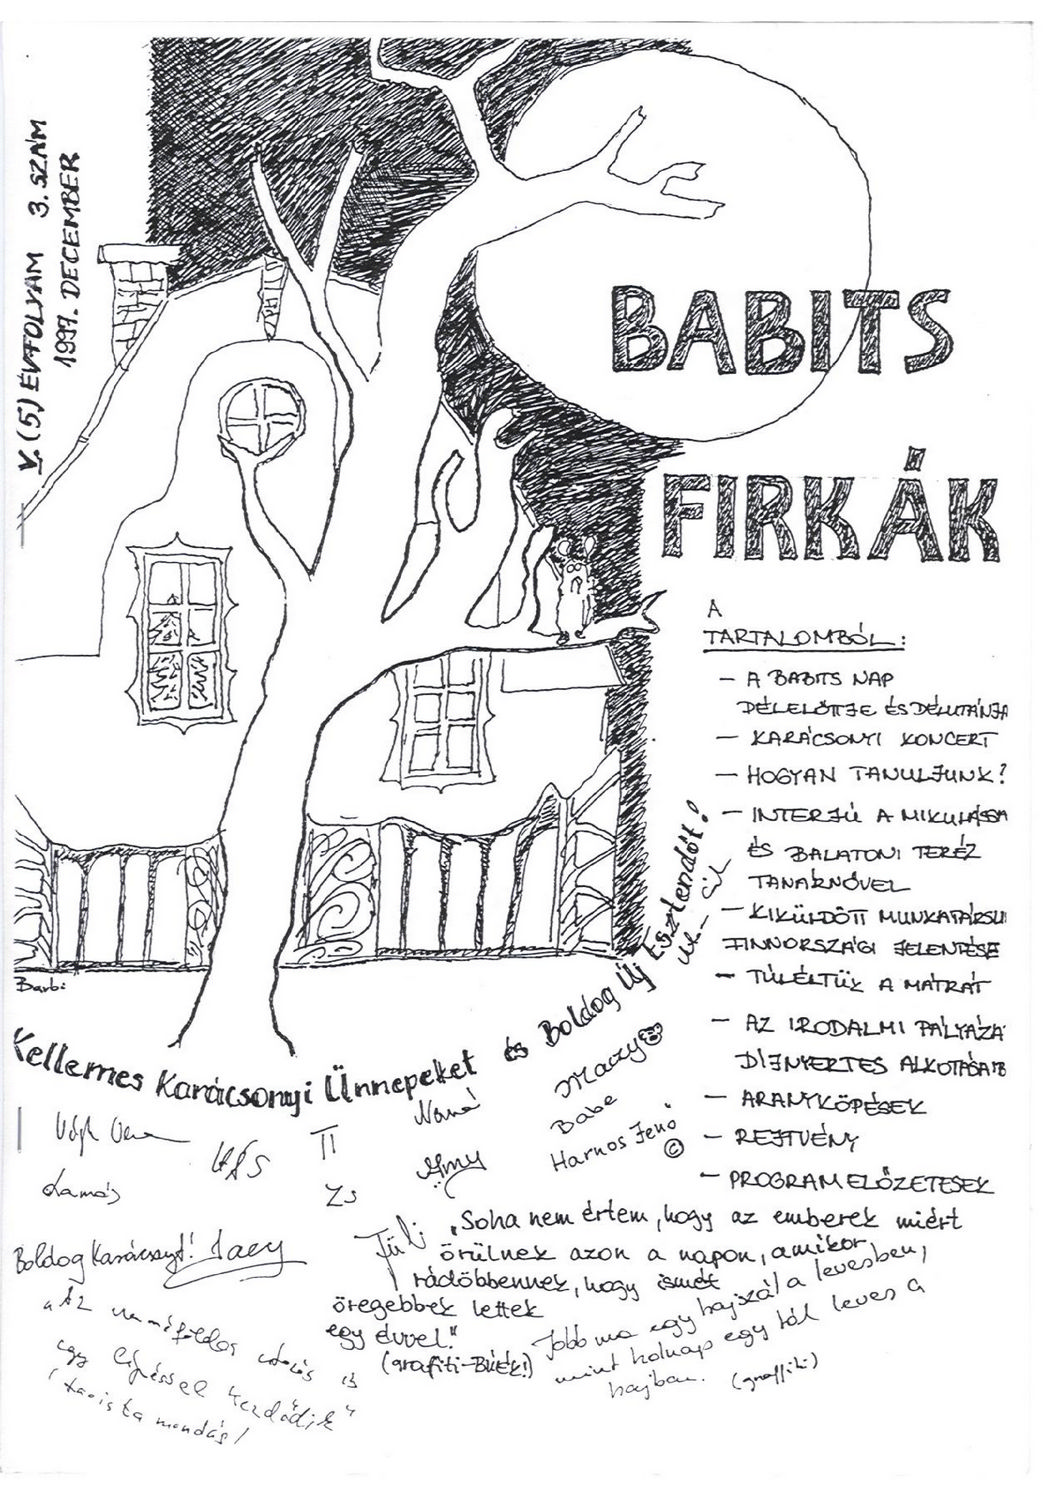 V. (5) ÉVFOLYAM 3. SZÁM
1997. DECEMBER
BABITS
FIRKÁK
A
TARTALOMBÓL:
- A BABITS NAP
DÉLELŐTTJE ÉS DÉLUTÁNJA
- KARÁCSONYI KONCERT
- HOGYAN TANULJUNK?
- INTERJÚ A MIKULÁSSA
ÉS BALATONI TERÉZ
TANÁRNŐVEL
- KIKÜLDÖTT MUNKATÁRSU
FINNORSZÁGI JELENTÉSE
- TÚLÉLTÜK A MÁTRÁT
- AZ IRODALMI PÁLYÁZA
DÍJNYERTES ALKOTÁSAIB
- ARANYKÖPÉSEK
- REJTVÉNY
- PROGRAMELŐZETESEK
Barbi
Kellemes Karácsonyi Ünnepeket és Boldog Új Esztendőt!
Maczy
Babe
Harnos Jenő
©
Nomá
Amy
TT
ZS
Tamás
Jüli
Boldog Karácsonyt! Jacy
„Soha nem értem, hogy az emberek miért
örülnek azon a napon, amikor
rádöbbennek, hogy ismét
öregebbek lettek
egy évvel."
(grafiti-BÚÉK!)
Jobb ma egy hajszál a levesben,
mint holnap egy tál leves a
hajban. (graffiti)
„Az ezermérföldes utazás is
egy lépéssel kezdődik"
(taoista mondás)